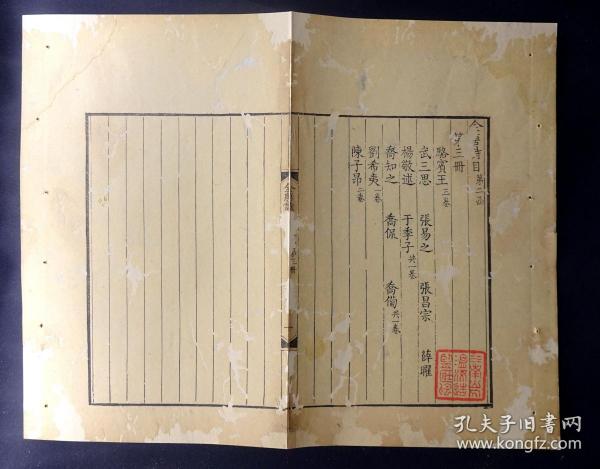 全唐詩目 第二函
第三冊
駱賓王 三卷
武三思 張易之 張昌宗 薛曜
楊敬述 于季子 共一卷
喬知之 喬侃 喬備 共一卷
劉希夷 一卷
陳子昂 二卷
全唐詩
第三冊
一
孔夫子旧书网
www.kongfz.com